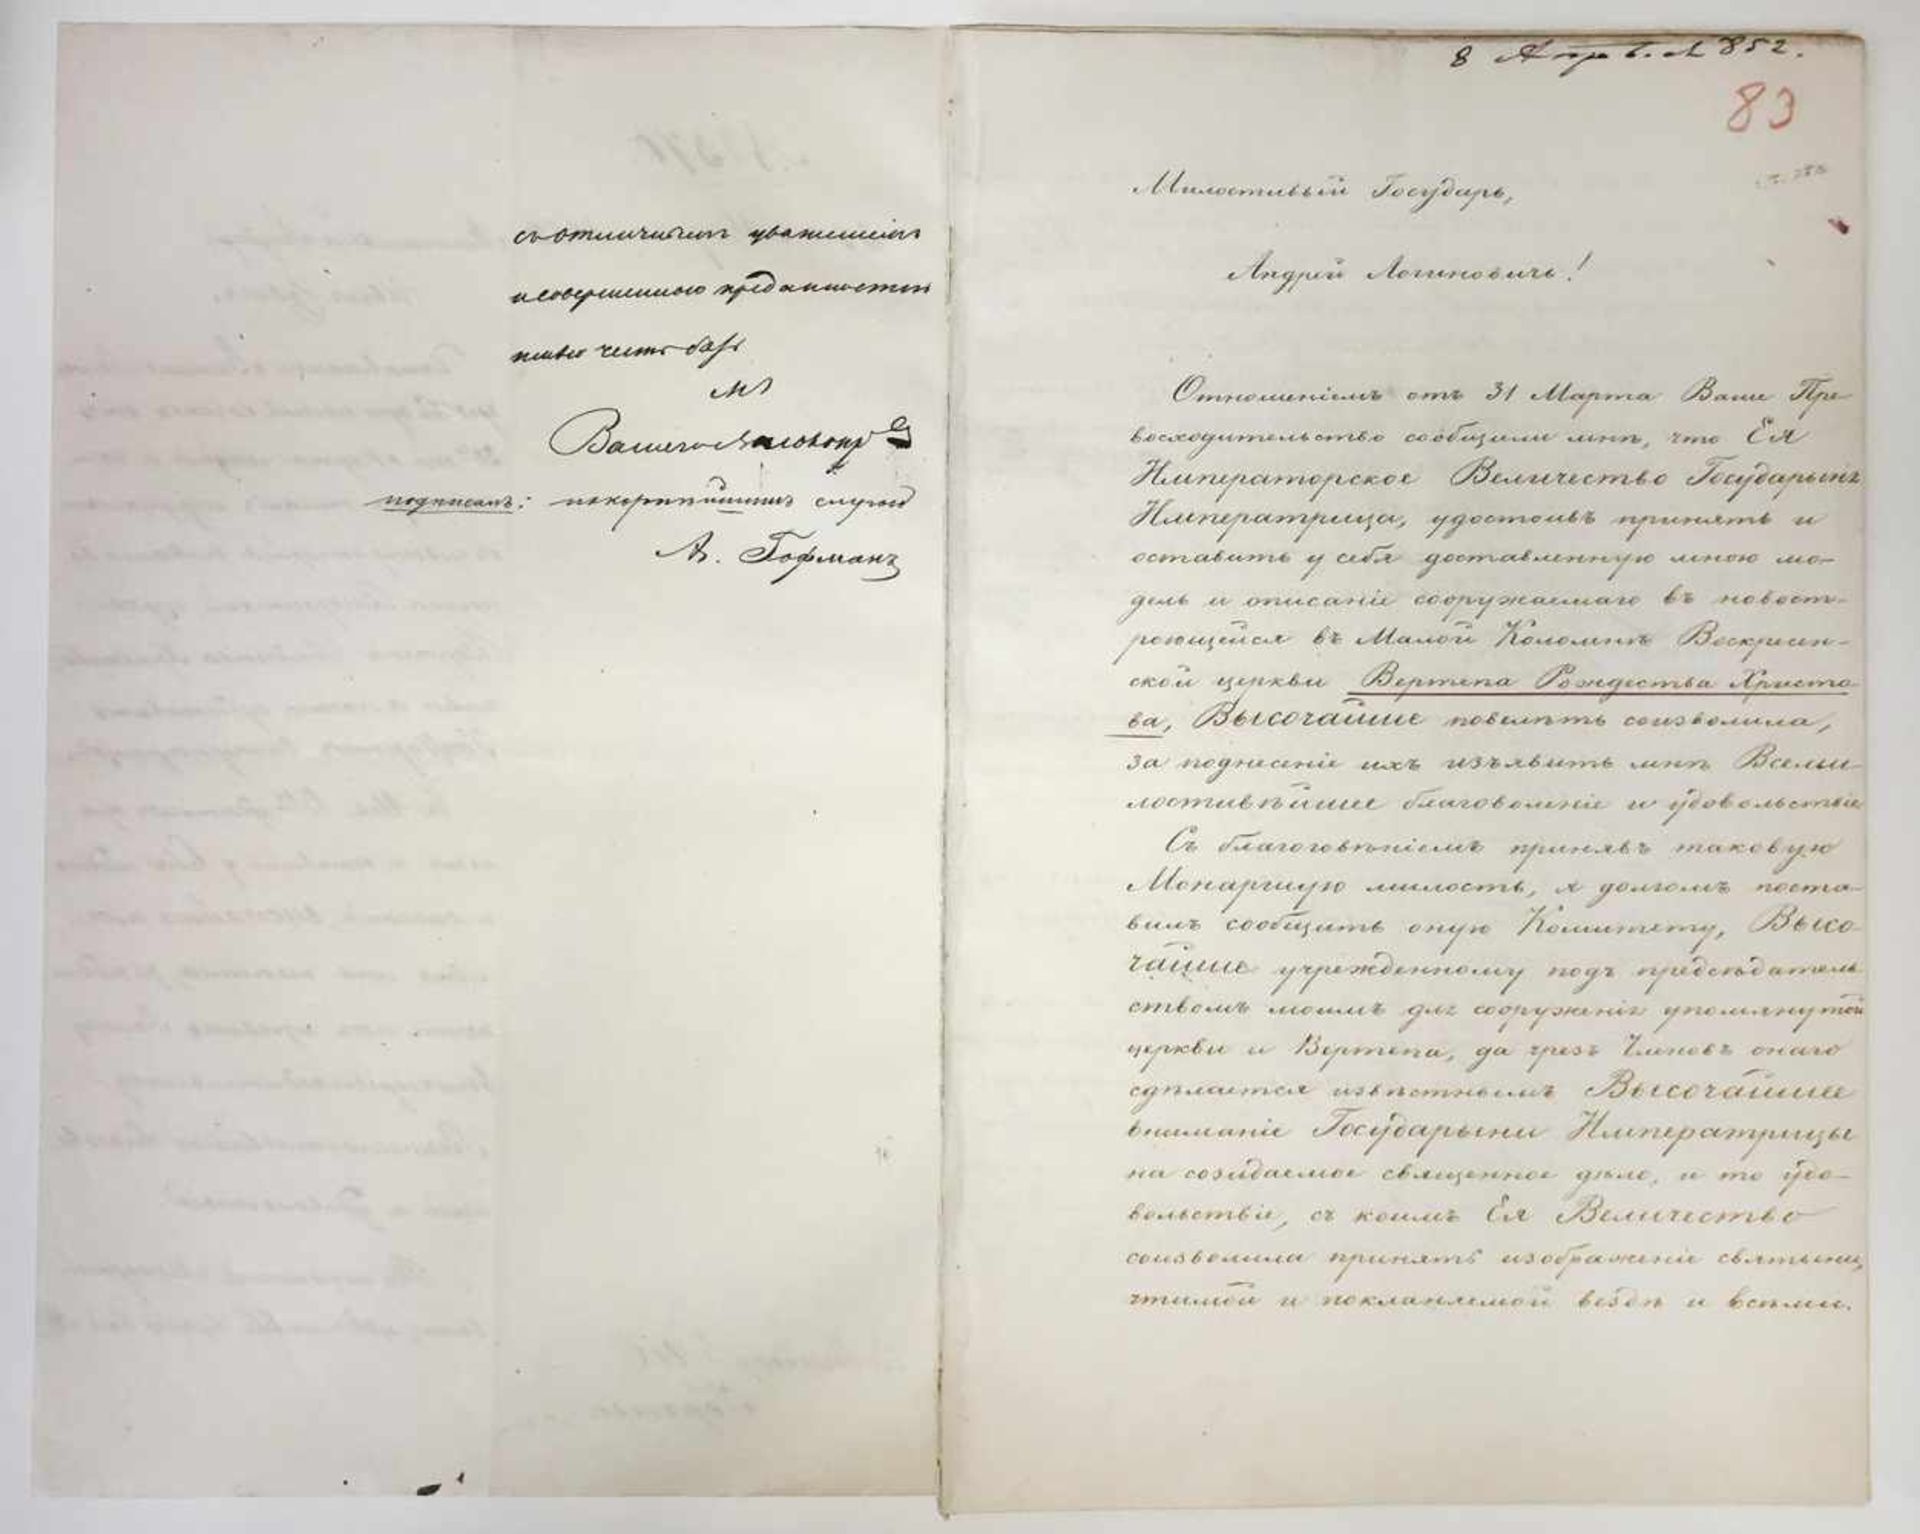 съ отличнымъ уваженіемъ
и совершенною преданностію
имѣю честь быть
Вашего
подписалъ: покорнѣйшимъ слугою
А. Гофманъ
8 Апр. 852.
83
Милостивый Государь,
Андрей Логиновичъ!
Отношеніемъ отъ 31 Марта Ваше Пре-
восходительство сообщили мнѣ, что Ея
Императорское Величество Государыня
Императрица, удостоивъ принять и
оставить у себя доставленную мною мо-
дель и описаніе сооружаемаго въ новост-
роющейся въ Малой Коломнѣ Воскресен-
ской церкви Вертепа Рождества Христо-
ва, Высочайше повелѣть соизволила,
за поднесеніе ихъ изъявить мнѣ Всеми-
лостивѣйшее благоволеніе и удовольствіе
Съ благоговѣніемъ принявъ таковую
Монаршую милость, я долгомъ поста-
вилъ сообщить оную Комитету, Высо-
чайше учрежденному подъ предсѣдатель
ствомъ моимъ для сооруженія упомянутой
церкви и Вертепа, да чрезъ Членовъ онаго
сдѣлается извѣстнымъ Высочайшее
вниманіе Государыни Императрицы
на созидаемое священное дѣло, и то удо-
вольствіе, съ коимъ Ея Величество
соизволила принять изображеніе святыни,
чтимой и покланяемой вездѣ и всѣми.